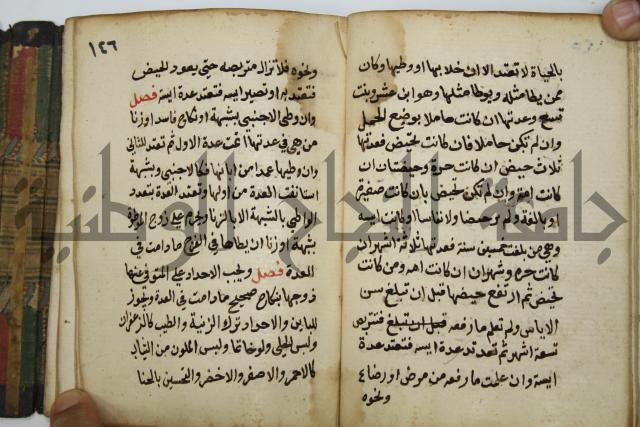 بالحياة لا تعتد الا ان خلا بها او وطيها وكان
ممن يطا مثله ويوطا مثلها وهو ابن عشر وبنت
تسع وعدتها ان كانت حاملا بوضع الحمل
وان لم تكن حاملا فان كانت تحيض فعدتها
ثلاث حيض ان كانت حرة وحيضتان ان
كانت امة وان لم تكن تحيض بان كانت صغيرة
او بالغة ولم تر حيضا ولا نفاسا او كانت ايسة
وهي من بلغت خمسين سنة فعدتها ثلاثة اشهر ان
كانت حره وشهران ان كانت امه ومن كانت
تحيض ثم ارتفع حيضها قبل ان تبلغ سن
الاياس ولم تعلم ما رفعه قبل ان تبلغ فتتربص
تسعة اشهر ثم تعتد عدة ايسه فتعتد عدة
ايسة وان علمت ما رفعه من مرض او رضاع
ونحوه
١٤٦
ونحوه فلا تزال متربصه حتى يعود الحيض
فتعتد به او تصير ايسه فتعتد عدة ايسة فصل
وان وطئ الاجنبي بشبهة او نكاح فاسد او زنا
من هي في عدتها اتمت عدة الاول ثم تعتد للثاني
وان وطيها عمدا من ابانها فكالاجنبي وبشبهة
استانفت العدة من اولها وتتعدد العدة بتعدد
الواطي بالشبهة الا بالزنا ويحرم على زوج الموطؤة
بشبهة او زنا ان يطاها في الفرج ما دامت في
العدة فصل ويجب الاحداد على المتوفى عنها
زوجها بنكاح صحيح ما دامت في العدة ويجوز
للباين والاحداد ترك الزينة والطيب كالزعفران
ولبس الحلي ولو خاتما ولبس الملون من الثياب
كالاحمر والاصفر والاخضر والتحسين بالحنا
جامعة النجاح الوطنية